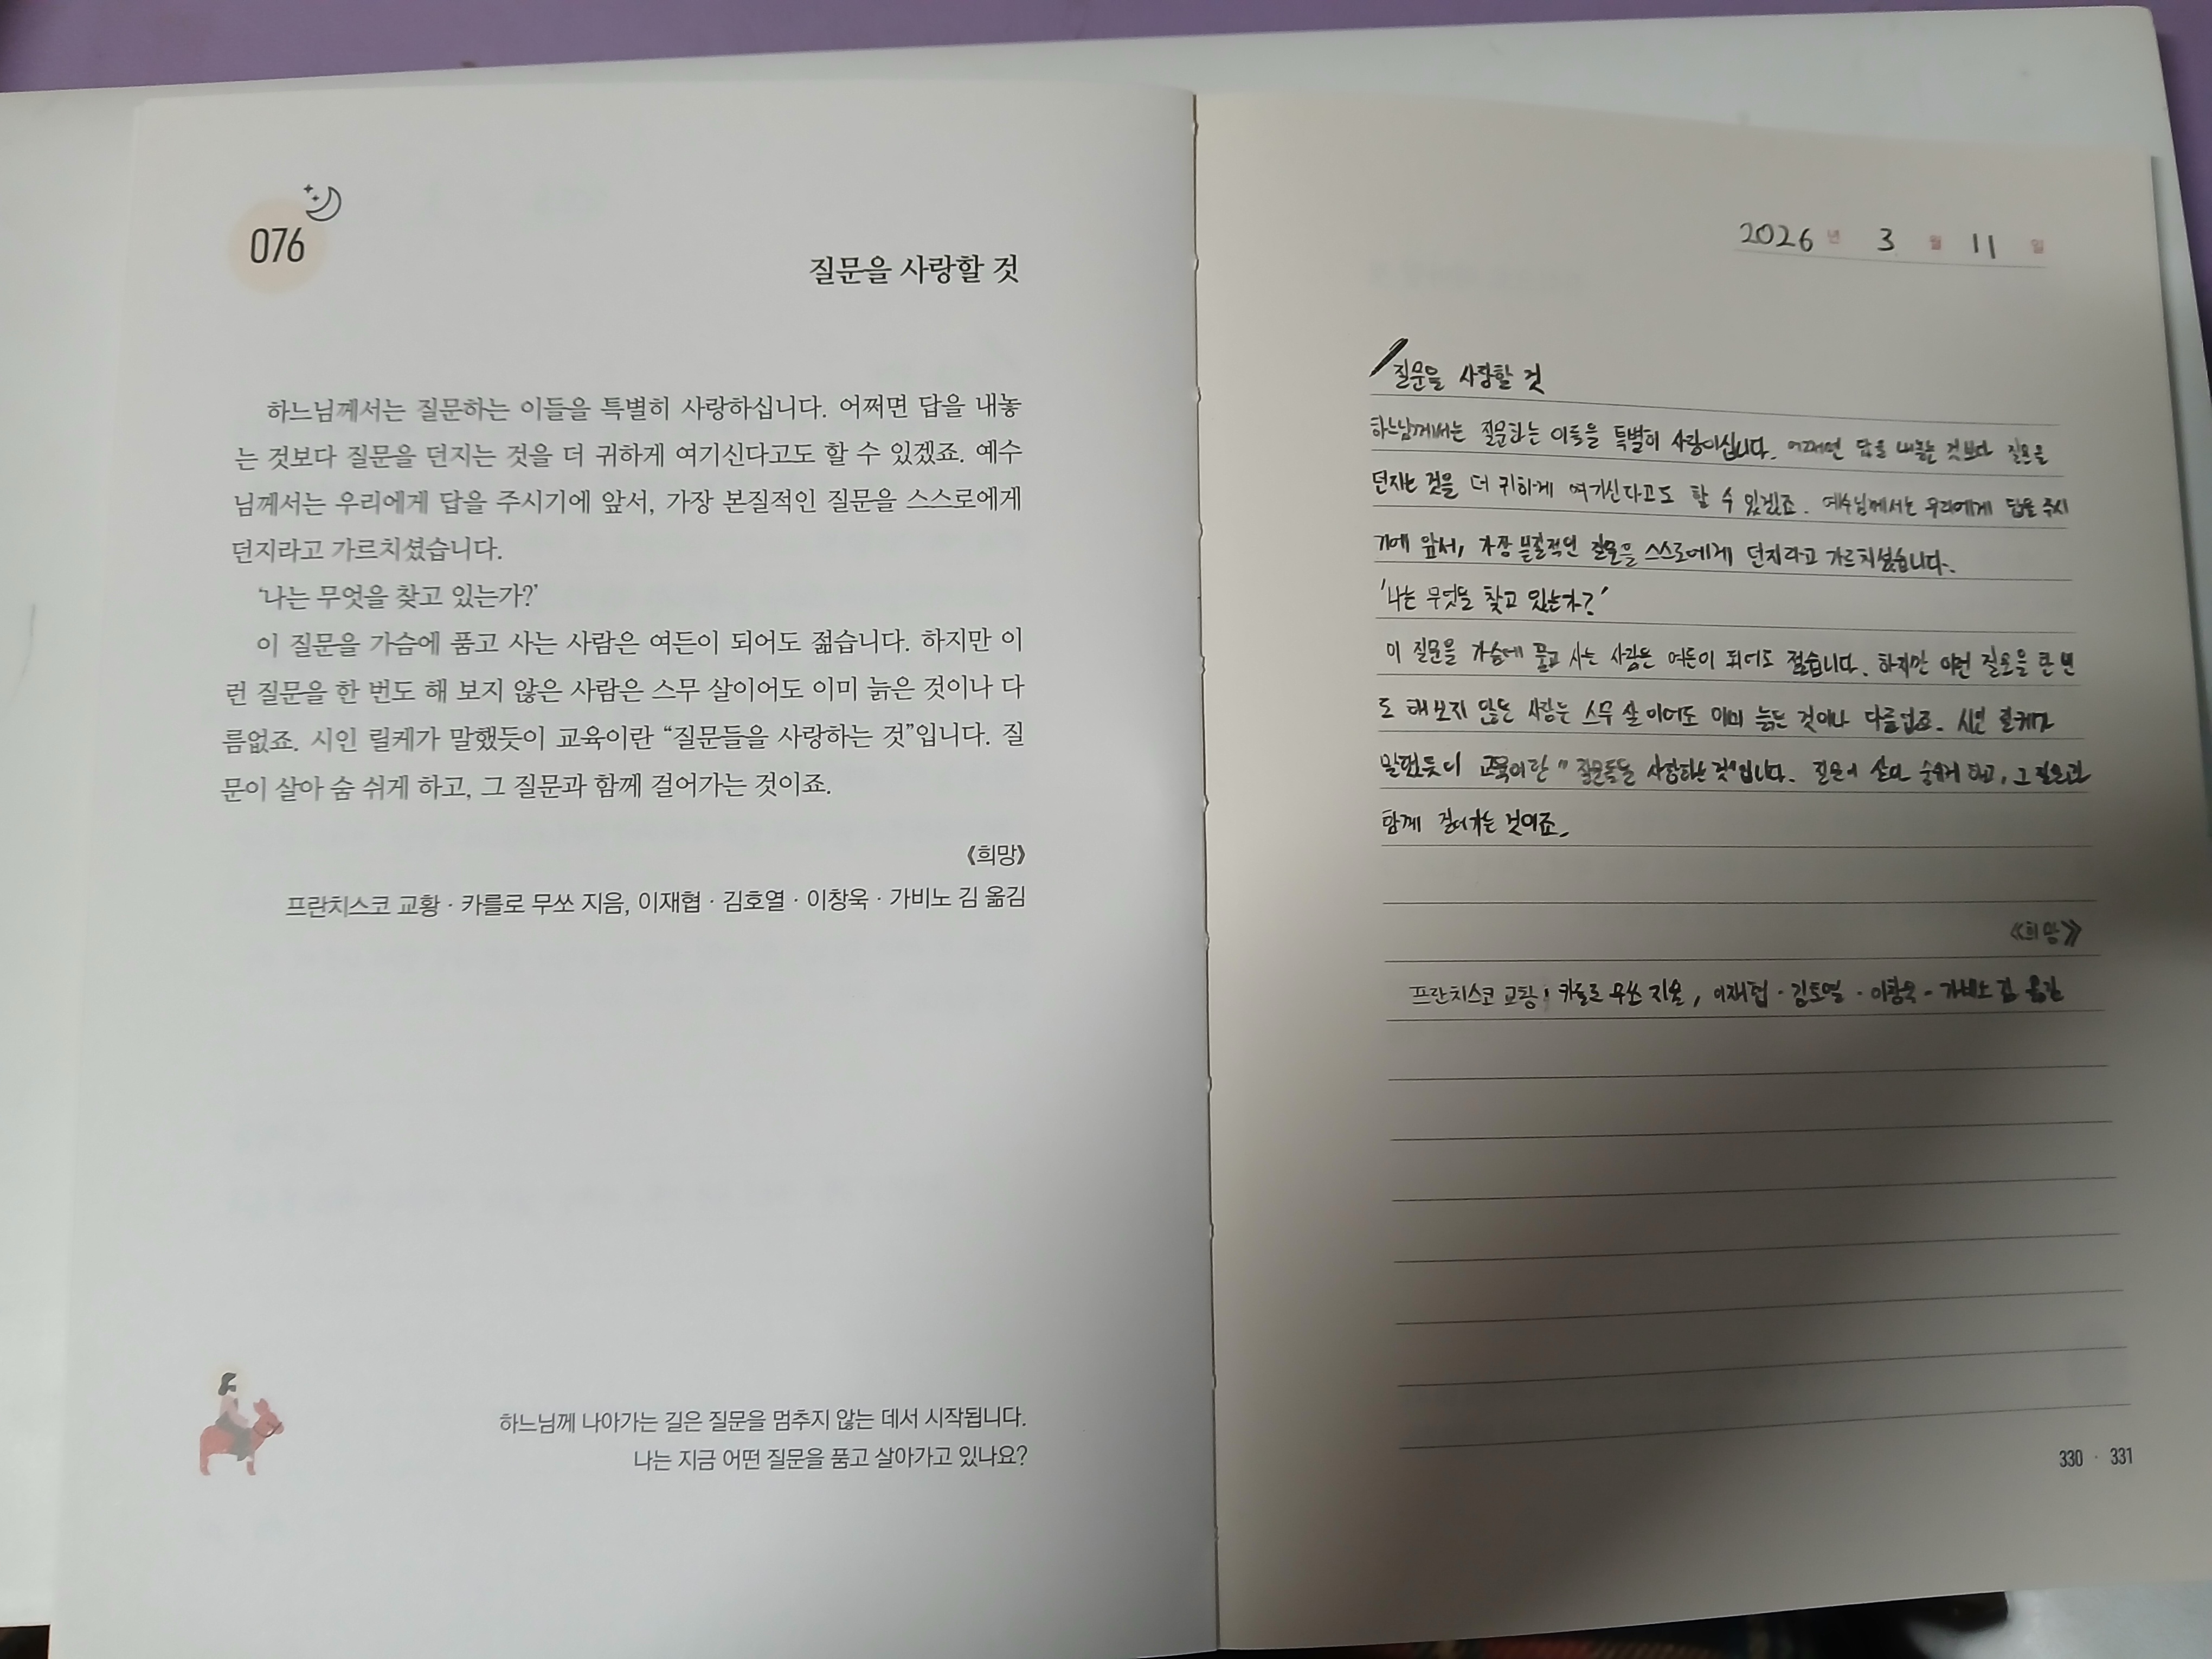 076
질문을 사랑할 것
하느님께서는 질문하는 이들을 특별히 사랑하십니다. 어쩌면 답을 내놓
는 것보다 질문을 던지는 것을 더 귀하게 여기신다고도 할 수 있겠죠. 예수
님께서는 우리에게 답을 주시기에 앞서, 가장 본질적인 질문을 스스로에게
던지라고 가르치셨습니다.
‘나는 무엇을 찾고 있는가?’
이 질문을 가슴에 품고 사는 사람은 여든이 되어도 젊습니다. 하지만 이
런 질문을 한 번도 해 보지 않은 사람은 스무 살이어도 이미 늙은 것이나 다
름없죠. 시인 릴케가 말했듯이 교육이란 “질문들을 사랑하는 것”입니다. 질
문이 살아 숨 쉬게 하고, 그 질문과 함께 걸어가는 것이죠.
《희망》
프란치스코 교황 · 카를로 무쏘 지음, 이재협 · 김호열 · 이창욱 · 가비노 김 옮김
하느님께 나아가는 길은 질문을 멈추지 않는 데서 시작됩니다.
나는 지금 어떤 질문을 품고 살아가고 있나요?
2026 년 3 월 11 일
질문을 사랑할 것
하느님께서는 질문하는 이들을 특별히 사랑하십니다. 어쩌면 답을 내놓는 것보다 질문을
던지는 것을 더 귀하게 여기신다고도 할 수 있겠죠. 예수님께서는 우리에게 답을 주시
기에 앞서, 가장 본질적인 질문을 스스로에게 던지라고 가르치셨습니다.
'나는 무엇을 찾고 있는가?'
이 질문을 가슴에 품고 사는 사람은 여든이 되어도 젊습니다. 하지만 이런 질문을 한 번
도 해 보지 않은 사람은 스무 살이어도 이미 늙은 것이나 다름없죠. 시인 릴케가
말했듯이 교육이란 "질문들을 사랑하는 것"입니다. 질문이 살아 숨쉬게 하고, 그 질문과
함께 걸어가는 것이죠.
《희망》
프란치스코 교황 · 카를로 무쏘 지음, 이재협 · 김호열 · 이창욱 · 가비노 김 옮김
330 · 331